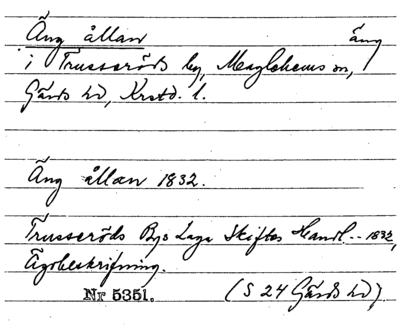 Äng ållan äng
i Trusseröds by, Maglehems sn,
Gärds hd, Krstd. l.
Äng ållan 1832.
Trusseröds Bys Laga Skiftes Handl. -- 1832,
Ägobeskrifning.
Nr 5351. (S 24 Gärds hd).